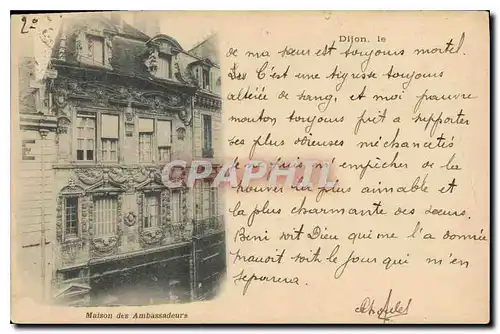 2°
Dijon, le
de ma sœur est toujours mortel.
C'est une tigresse toujours
altérée de sang, et moi pauvre
mouton toujours prêt a supporter
ses plus odieuses méchancetés
Je ne puis m'empêcher de la
trouver la plus aimable et
la plus charmante des sœurs.
Béni soit Dieu qui me l'a donnée
Maudit soit le jour qui m'en
séparera.
CPARAMA
Maison des Ambassadeurs